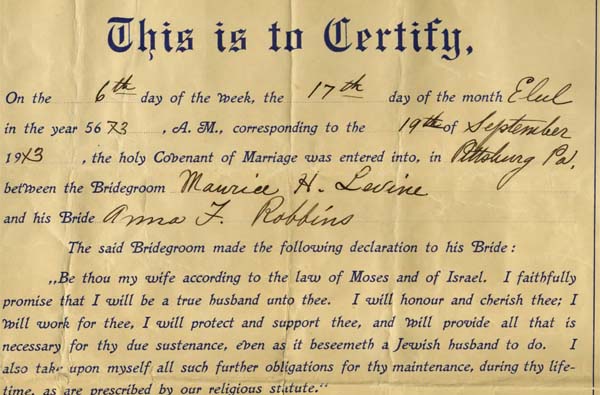 This is to Certify,
On the 6th day of the week, the 17th day of the month Elul
in the year 5673, A. M., corresponding to the 19th of September
1913, the holy Covenant of Marriage was entered into, in Pittsburg Pa.
between the Bridegroom Maurice H. Levine
and his Bride Anna F. Robbins
The said Bridegroom made the following declaration to his Bride:
„Be thou my wife according to the law of Moses and of Israel. I faithfully
promise that I will be a true husband unto thee. I will honour and cherish thee; I
will work for thee, I will protect and support thee, and will provide all that is
necessary for thy due sustenance, even as it beseemeth a Jewish husband to do. I
also take upon myself all such further obligations for thy maintenance, during thy life-
time, as are prescribed by our religious statute.“